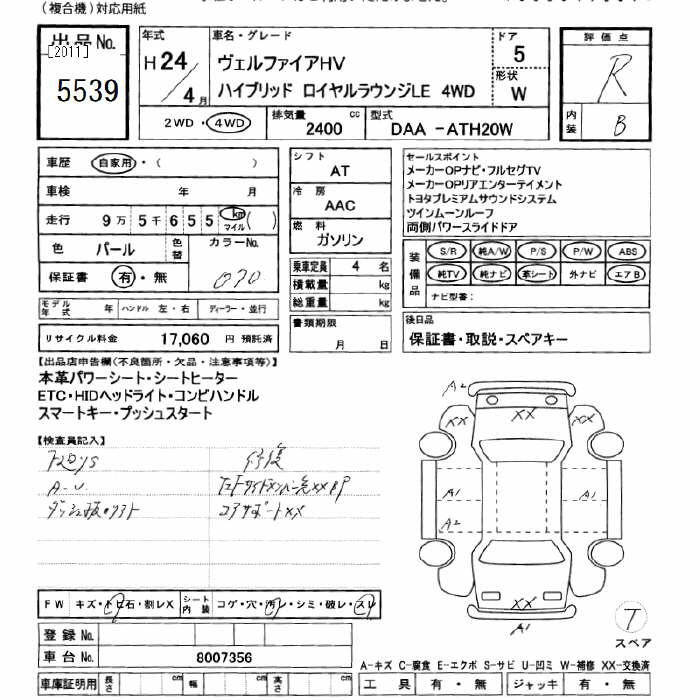 (複合機)対応用紙
出品No.
[2011]
5539
年式
H24/4月
車名・グレード
ヴェルファイアHV
ハイブリッド ロイヤルラウンジLE 4WD
ドア
5
形状
W
評価点
R
内装
B
2WD・4WD
排気量
2400 cc
型式
DAA -ATH20W
車歴
自家用・( )
車検
年 月
走行
9万 5千 6 5 5 km マイル ( )
色
パール
色替
カラーNo.
070
保証書
有・無
シフト
AT
冷房
AAC
燃料
ガソリン
乗車定員 4 名
積載量 kg
総重量 kg
書類期限
月 日
セールスポイント
メーカーOPナビ・フルセグTV
メーカーOPリアエンターテイメント
トヨタプレミアムサウンドシステム
ツインムーンルーフ
両側パワースライドドア
装備品
S/R 純A/W P/S P/W ABS
純TV 純ナビ 革シート 外ナビ エアB
ナビ型番:
モデル年式 年 ハンドル 左・右 ディーラー・並行
リサイクル料金 17,060 円 預託済
後日品
保証書・取説・スペアキー
【出品店申告欄(不良箇所・欠品・注意事項等)】
本革パワーシート・シートヒーター
ETC・HIDヘッドライト・コンビハンドル
スマートキー・プッシュスタート
【検査員記入】
修復
A-U
コアサポートXX
A2
XX
XX
XX
A1
A1
A2
XX
A1
T
スペア
FW キズ・トビ石・割レX
シート内装 コゲ・穴・汚レ・シミ・破レ・スレ
登録No.
車台No. 8007356
車庫証明用 長さ cm 幅 cm 高さ cm
A-キズ C-腐食 E-エクボ S-サビ U-凹ミ W-補修 XX-交換済
工具 有・無 ジャッキ 有・無